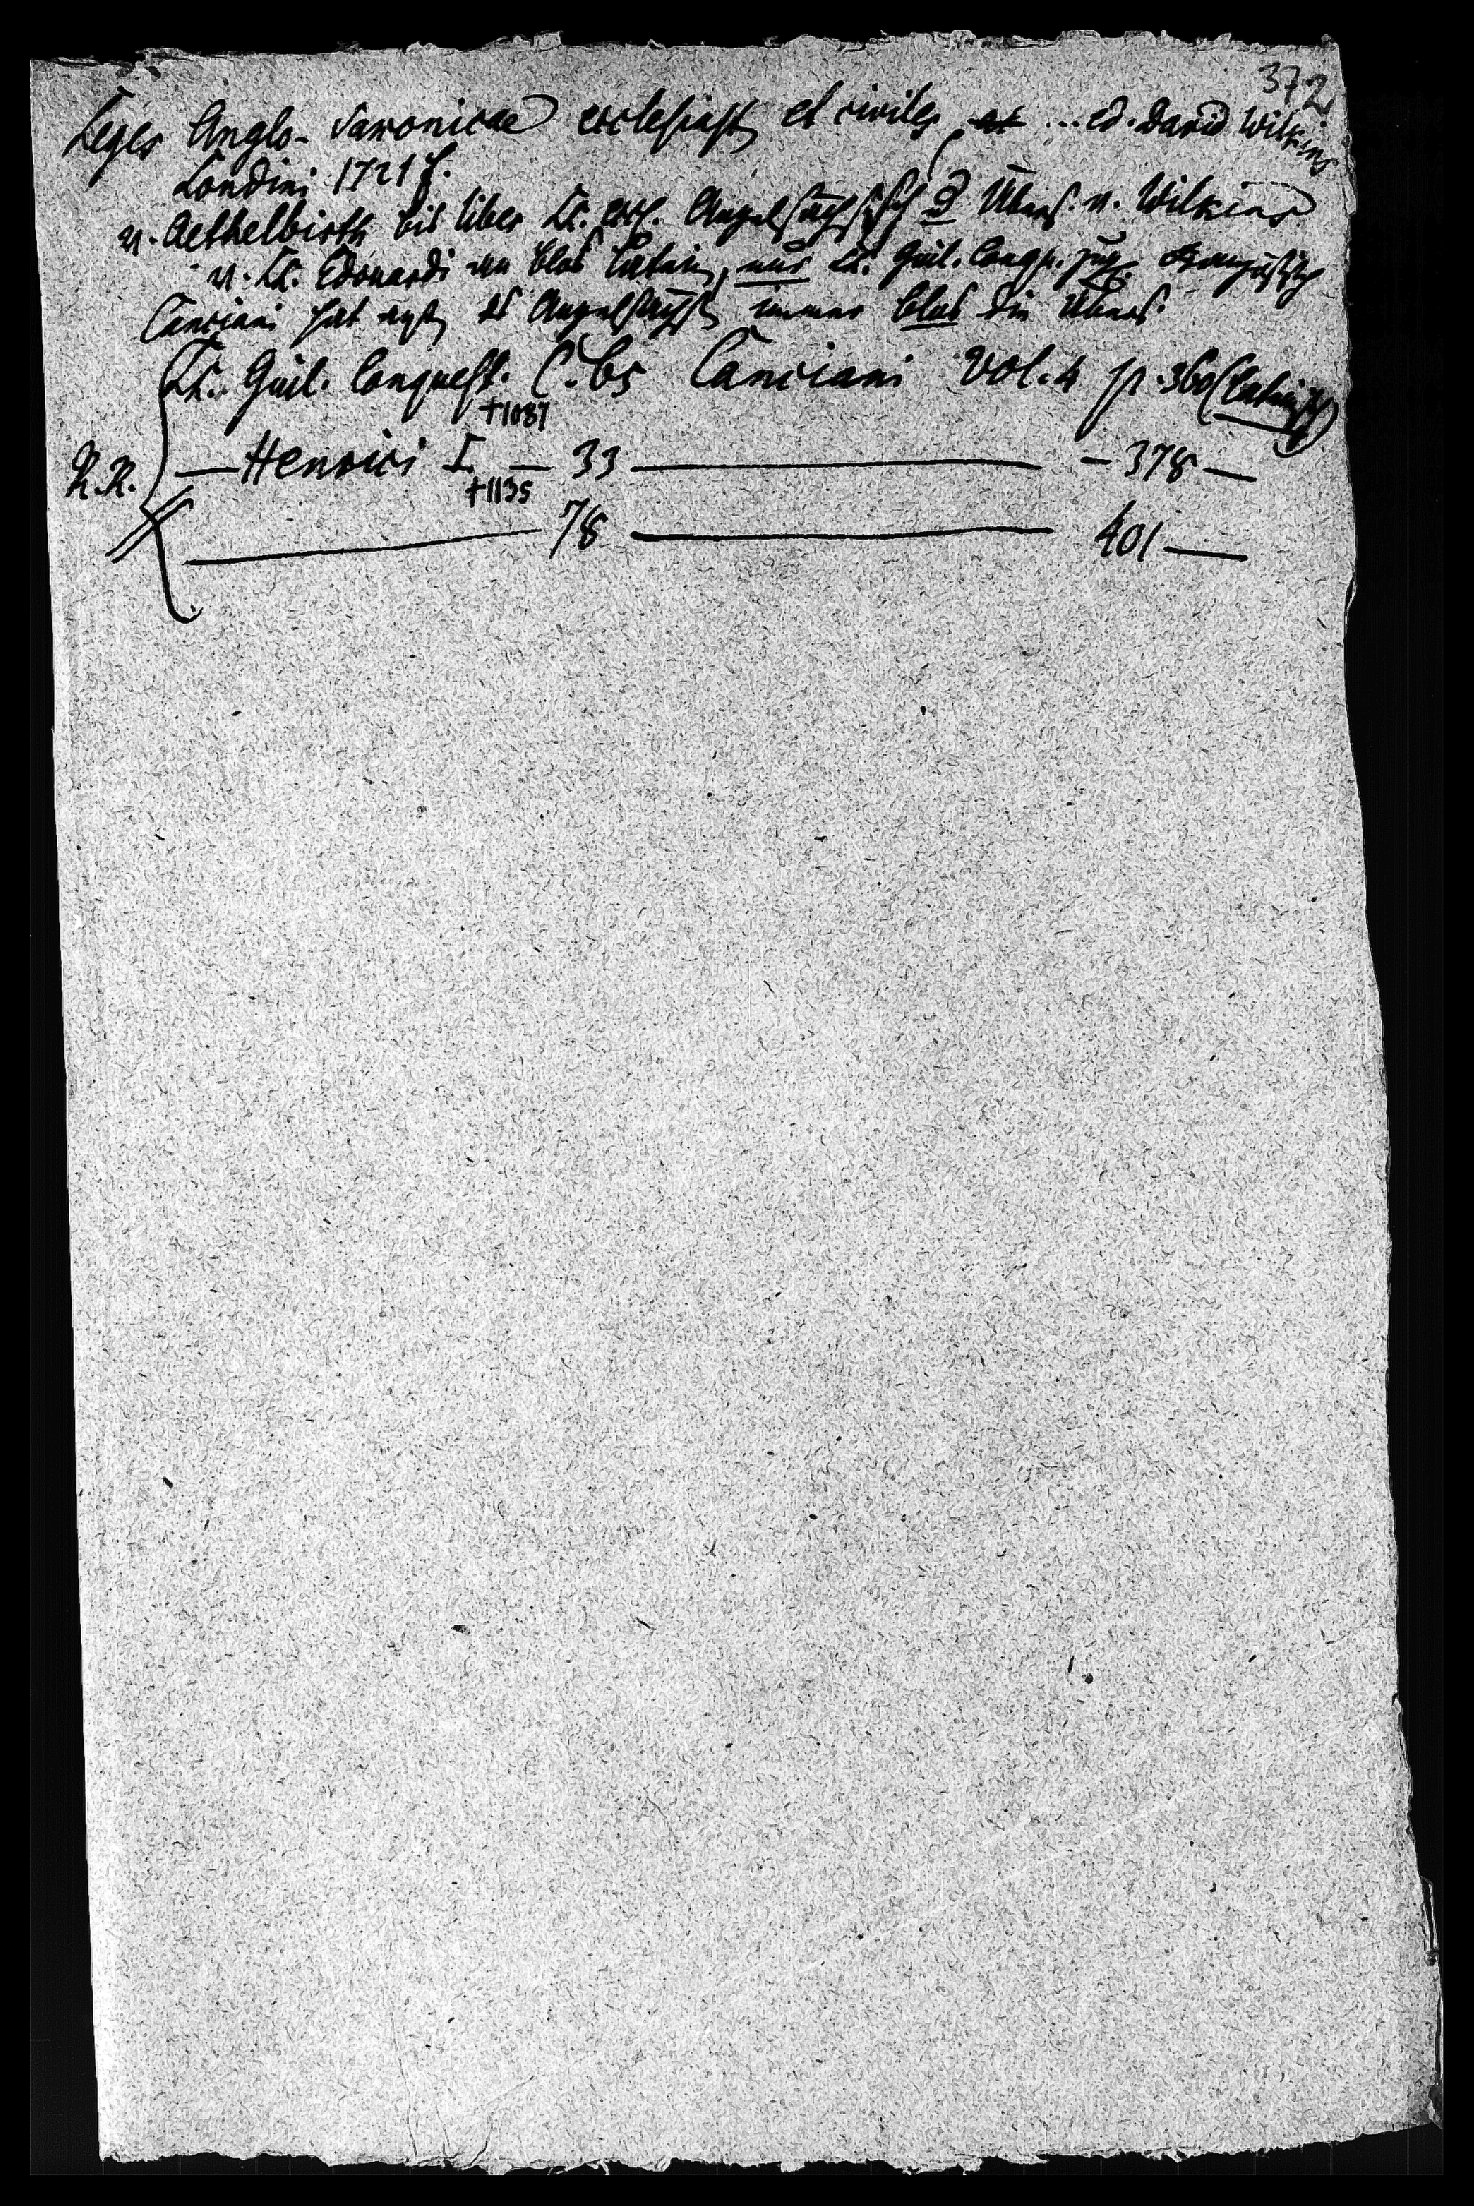 372
Leges Anglo-Saxonicae ecclesiast et civiles ... ed. David Wilkins
Londini 1721 f.
v. Aethelbirth bis liber LL. eccl. Angelsächsisch u Übers. v. Wilkins
v. LL. Edouardi an blos Latein, nur LL. Guil. Conqu. zug. französisch
Canciani hat statt des Angelsächs immer blos die Übers.
LL. Guil. Conquest. C. 65 Canciani Vol. 4 p. 360 (Latein)
†1087
R.R. — Henrici I — 33 — — 378 —
†1135
— 78 — 401 —